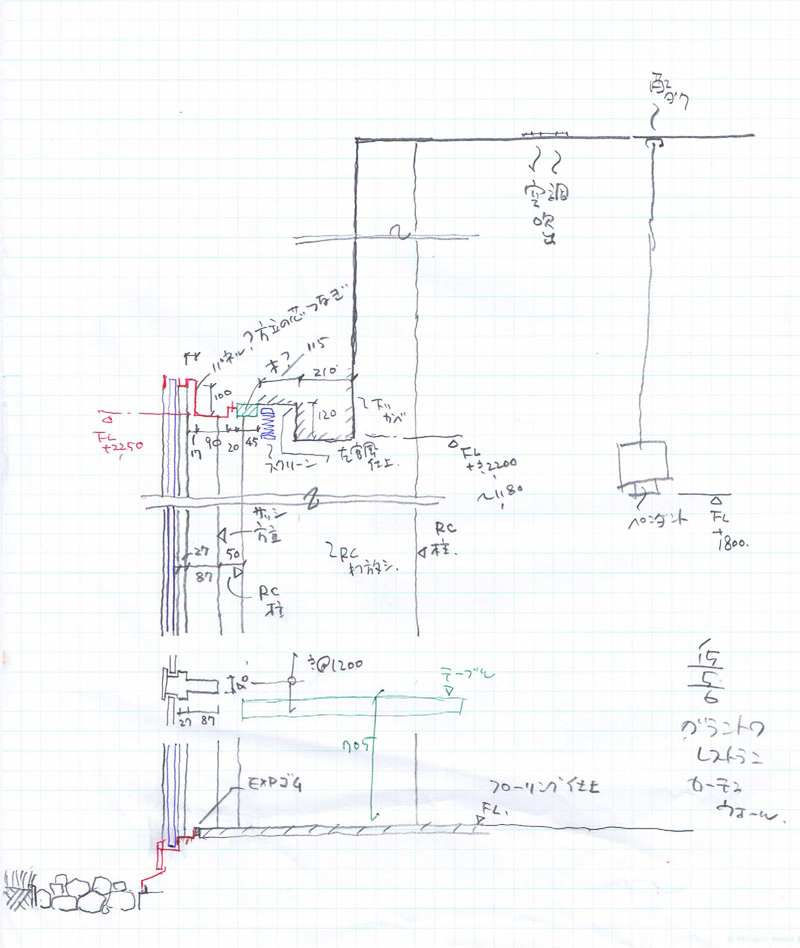 配ダク
空調
吹出
パネル?方立の芯つなぎ
ホ?
115
210
100
120
FL
+2250
17
90
20
45
スクリーン
FL
+2200
〜1180
ペンダント
FL
+1800.
サッシ
方立
27
50
87
RC
柱
RC
打放シ.
RC
柱.
@1200
27
87
テーブル
705
15
5
6
グラントワ
レストラン
カーテン
ウォール.
EXPゴム
フローリング仕上
FL.